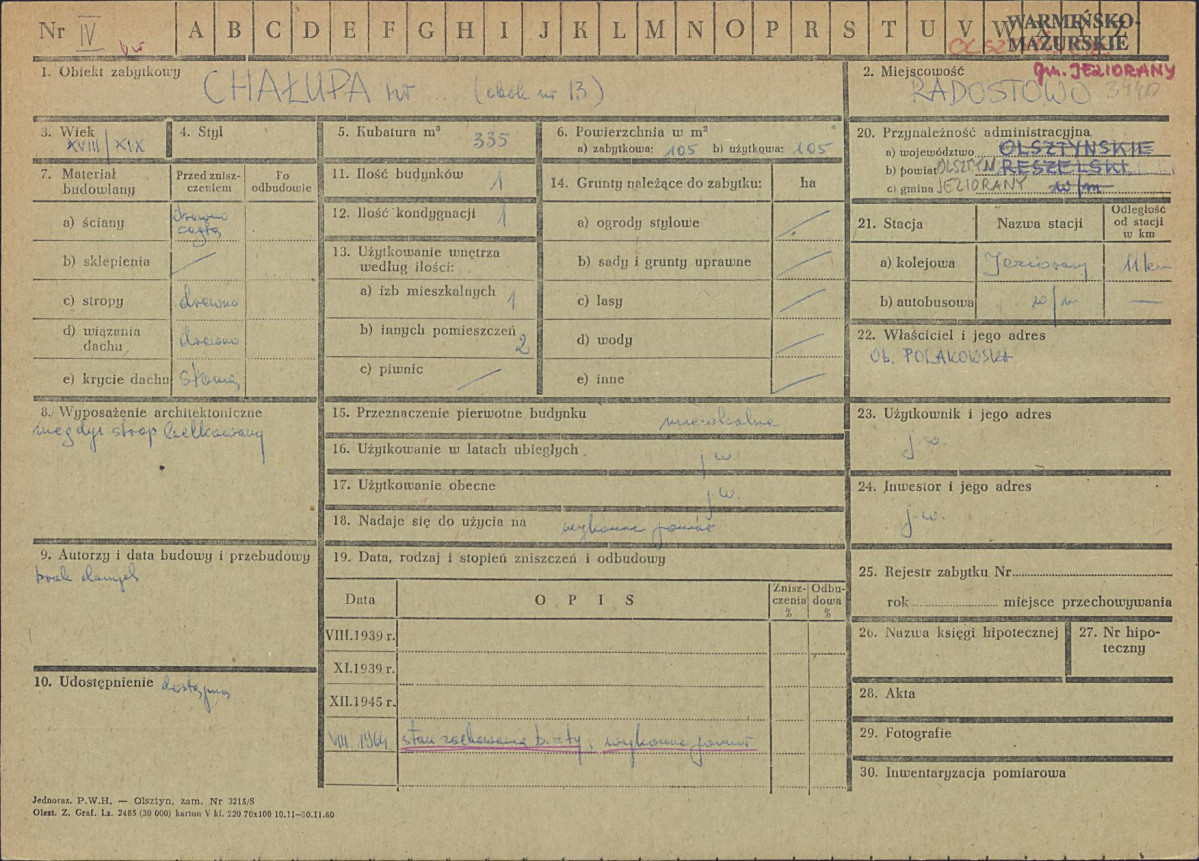 Nr IV A B C D E F G H I J K L M N O P R S T U V W
WARMIŃSKO-
MAZURSKIE
gm. JEZIORANY
1. Obiekt zabytkowy
CHAŁUPA nr .... (obok nr 13)
2. Miejscowość
RADOSTOWO 3440
3. Wiek
XVIII/XIX
4. Styl
5. Kubatura m³ 335
6. Powierzchnia w m²
a) zabytkowa: 105 b) użytkowa: 105
20. Przynależność administracyjna
a) województwo OLSZTYŃSKIE
b) powiat OLSZTYN RESZELSKI
c) gmina JEZIORANY w/m
7. Materiał budowlany
Przed zniszczeniem
Po odbudowie
a) ściany drewno
b) sklepienia
c) stropy drewno
d) wiązania dachu drewno
e) krycie dachu słoma
11. Ilość budynków 1
12. Ilość kondygnacji 1
13. Użytkowanie wnętrza
według ilości:
a) izb mieszkalnych 1
b) innych pomieszczeń 2
c) piwnic
14. Grunty należące do zabytku: ha
a) ogrody stylowe
b) sady i grunty uprawne
c) lasy
d) wody
e) inne
21. Stacja Nazwa stacji Odległość
od stacji
w km
a) kolejowa Jeziorany 11 km
b) autobusowa w/m —
22. Właściciel i jego adres
Ob. POLAKOWSKA
8. Wyposażenie architektoniczne
strop belkowany
15. Przeznaczenie pierwotne budynku mieszkalne
16. Użytkowanie w latach ubiegłych j.w.
17. Użytkowanie obecne j.w.
18. Nadaje się do użycia na wykonać pomiar
23. Użytkownik i jego adres
j.w.
24. Inwestor i jego adres
j.w.
9. Autorzy i data budowy i przebudowy
brak danych
19. Data, rodzaj i stopień zniszczeń i odbudowy
Data OPIS Znisz-
czenia
% Odbu-
dowa
%
VIII.1939 r.
XI.1939 r.
XII.1945 r.
VIII. 1964 stan zachowania b. zły, wykonać pomiar
10. Udostępnienie dostępna
25. Rejestr zabytku Nr
rok miejsce przechowywania
26. Nazwa księgi hipotecznej
27. Nr hipo-
teczny
28. Akta
29. Fotografie
30. Inwentaryzacja pomiarowa
Jednoraz. P.W.H. — Olsztyn, zam. Nr 3215/S
Olszt. Z. Graf. Lz. 2465 (30 000) karton V kl. 220 70x100 10.11—30.11.60